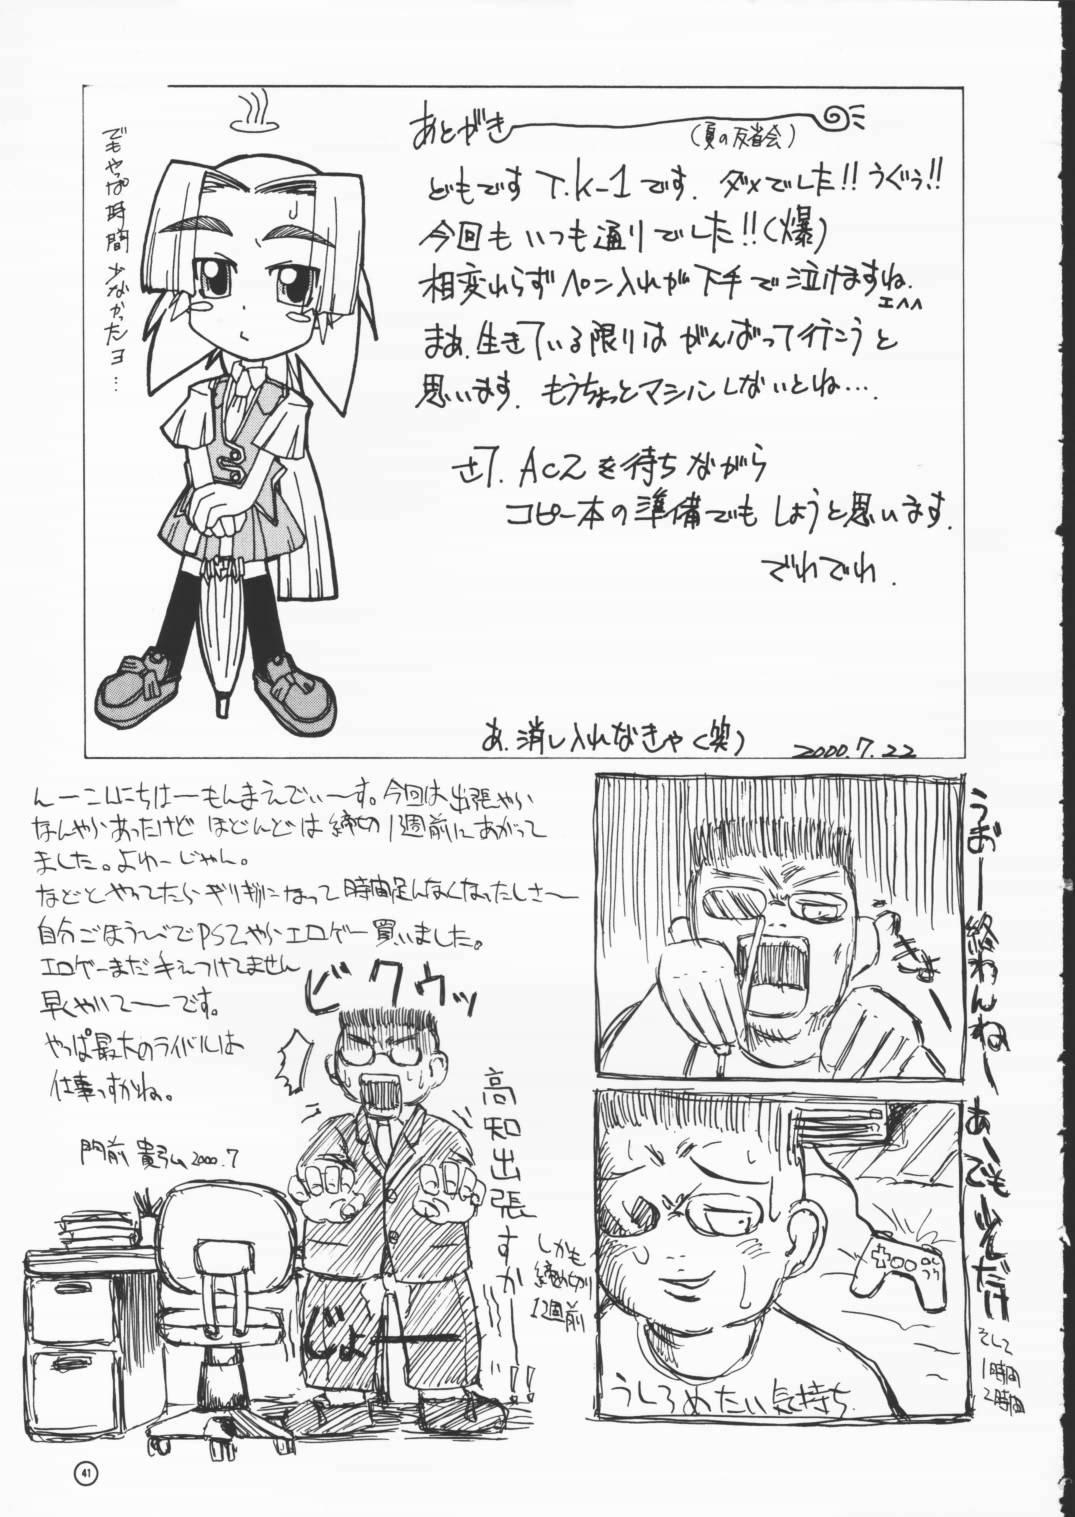 あとがき
(夏の反省会)
どもです T.K-1です. ダメでした!! うぐぅ!!
今回もいつも通りでした!!(爆)
相変わらずペン入れが下手で泣けますね.
まあ.生きている限りはがんばって行こうと
思います. もうちょっとマシにしないとね….
さて. AC2を待ちながら
コピー本の準備でもしようと思います.
でれでれ.
あ.消し入れなきゃ(笑)
2000.7.22
でもやっぱ時間少なかったヨ…
んーこんにちはーもんまえでぃーす。今回は出張やら
なんやらあったけど ほどんどは締切1週前にあがって
ました。よゆーじゃん。
などとやってたらギリギリになって時間足んなくなったしさ〜
自分ごほうびでPS2やらエロゲー買いました。
エロゲーまだ手えつけてません
早くやいてーーです。
やっぱ最大のライバルは
仕事っすかね。
門前 貴弘 2000.7
ビクウッ
高知出張すかーーー…!!
しかも
締め切り
1週前
じょー
うおー終わんねー
あーでも少しだけ
そして
1時間
2時間
うしろめたい気持ち
41